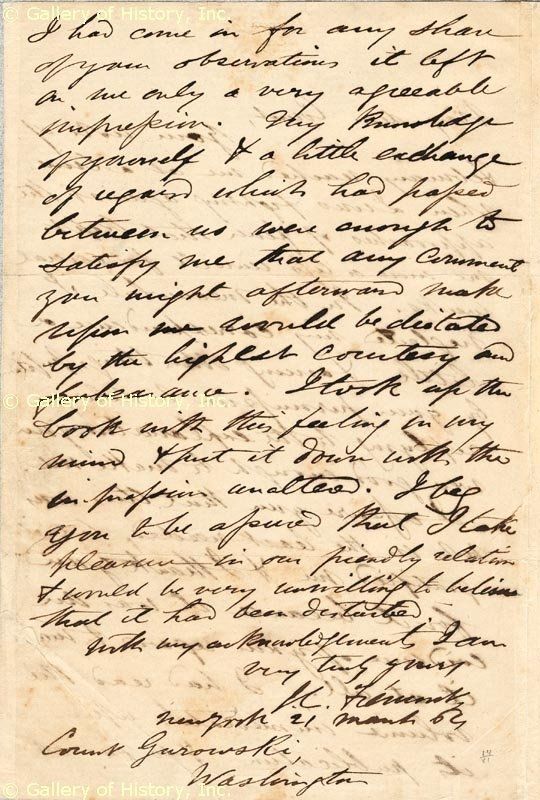 © Gallery of History, Inc.
I had come in for any share
of your observations it left
on me only a very agreeable
impression. My knowledge
of yourself & a little exchange
of regard which had passed
between us were enough to
satisfy me that any comment
you might afterward make
upon me would be dictated
by the highest courtesy and
© Gallery of History, Inc.
I took up the
book with this feeling in my
mind & put it down with the
impression unaltered. I beg
you to be assured that I take
pleasure in our friendly relation
& would be very unwilling to believe
that it had been disturbed
with my acknowledgments I am
very truly yours
J. C. Frémont
New York 21 March 64
Count Gurowski,
Washington
© Gallery of History, Inc.